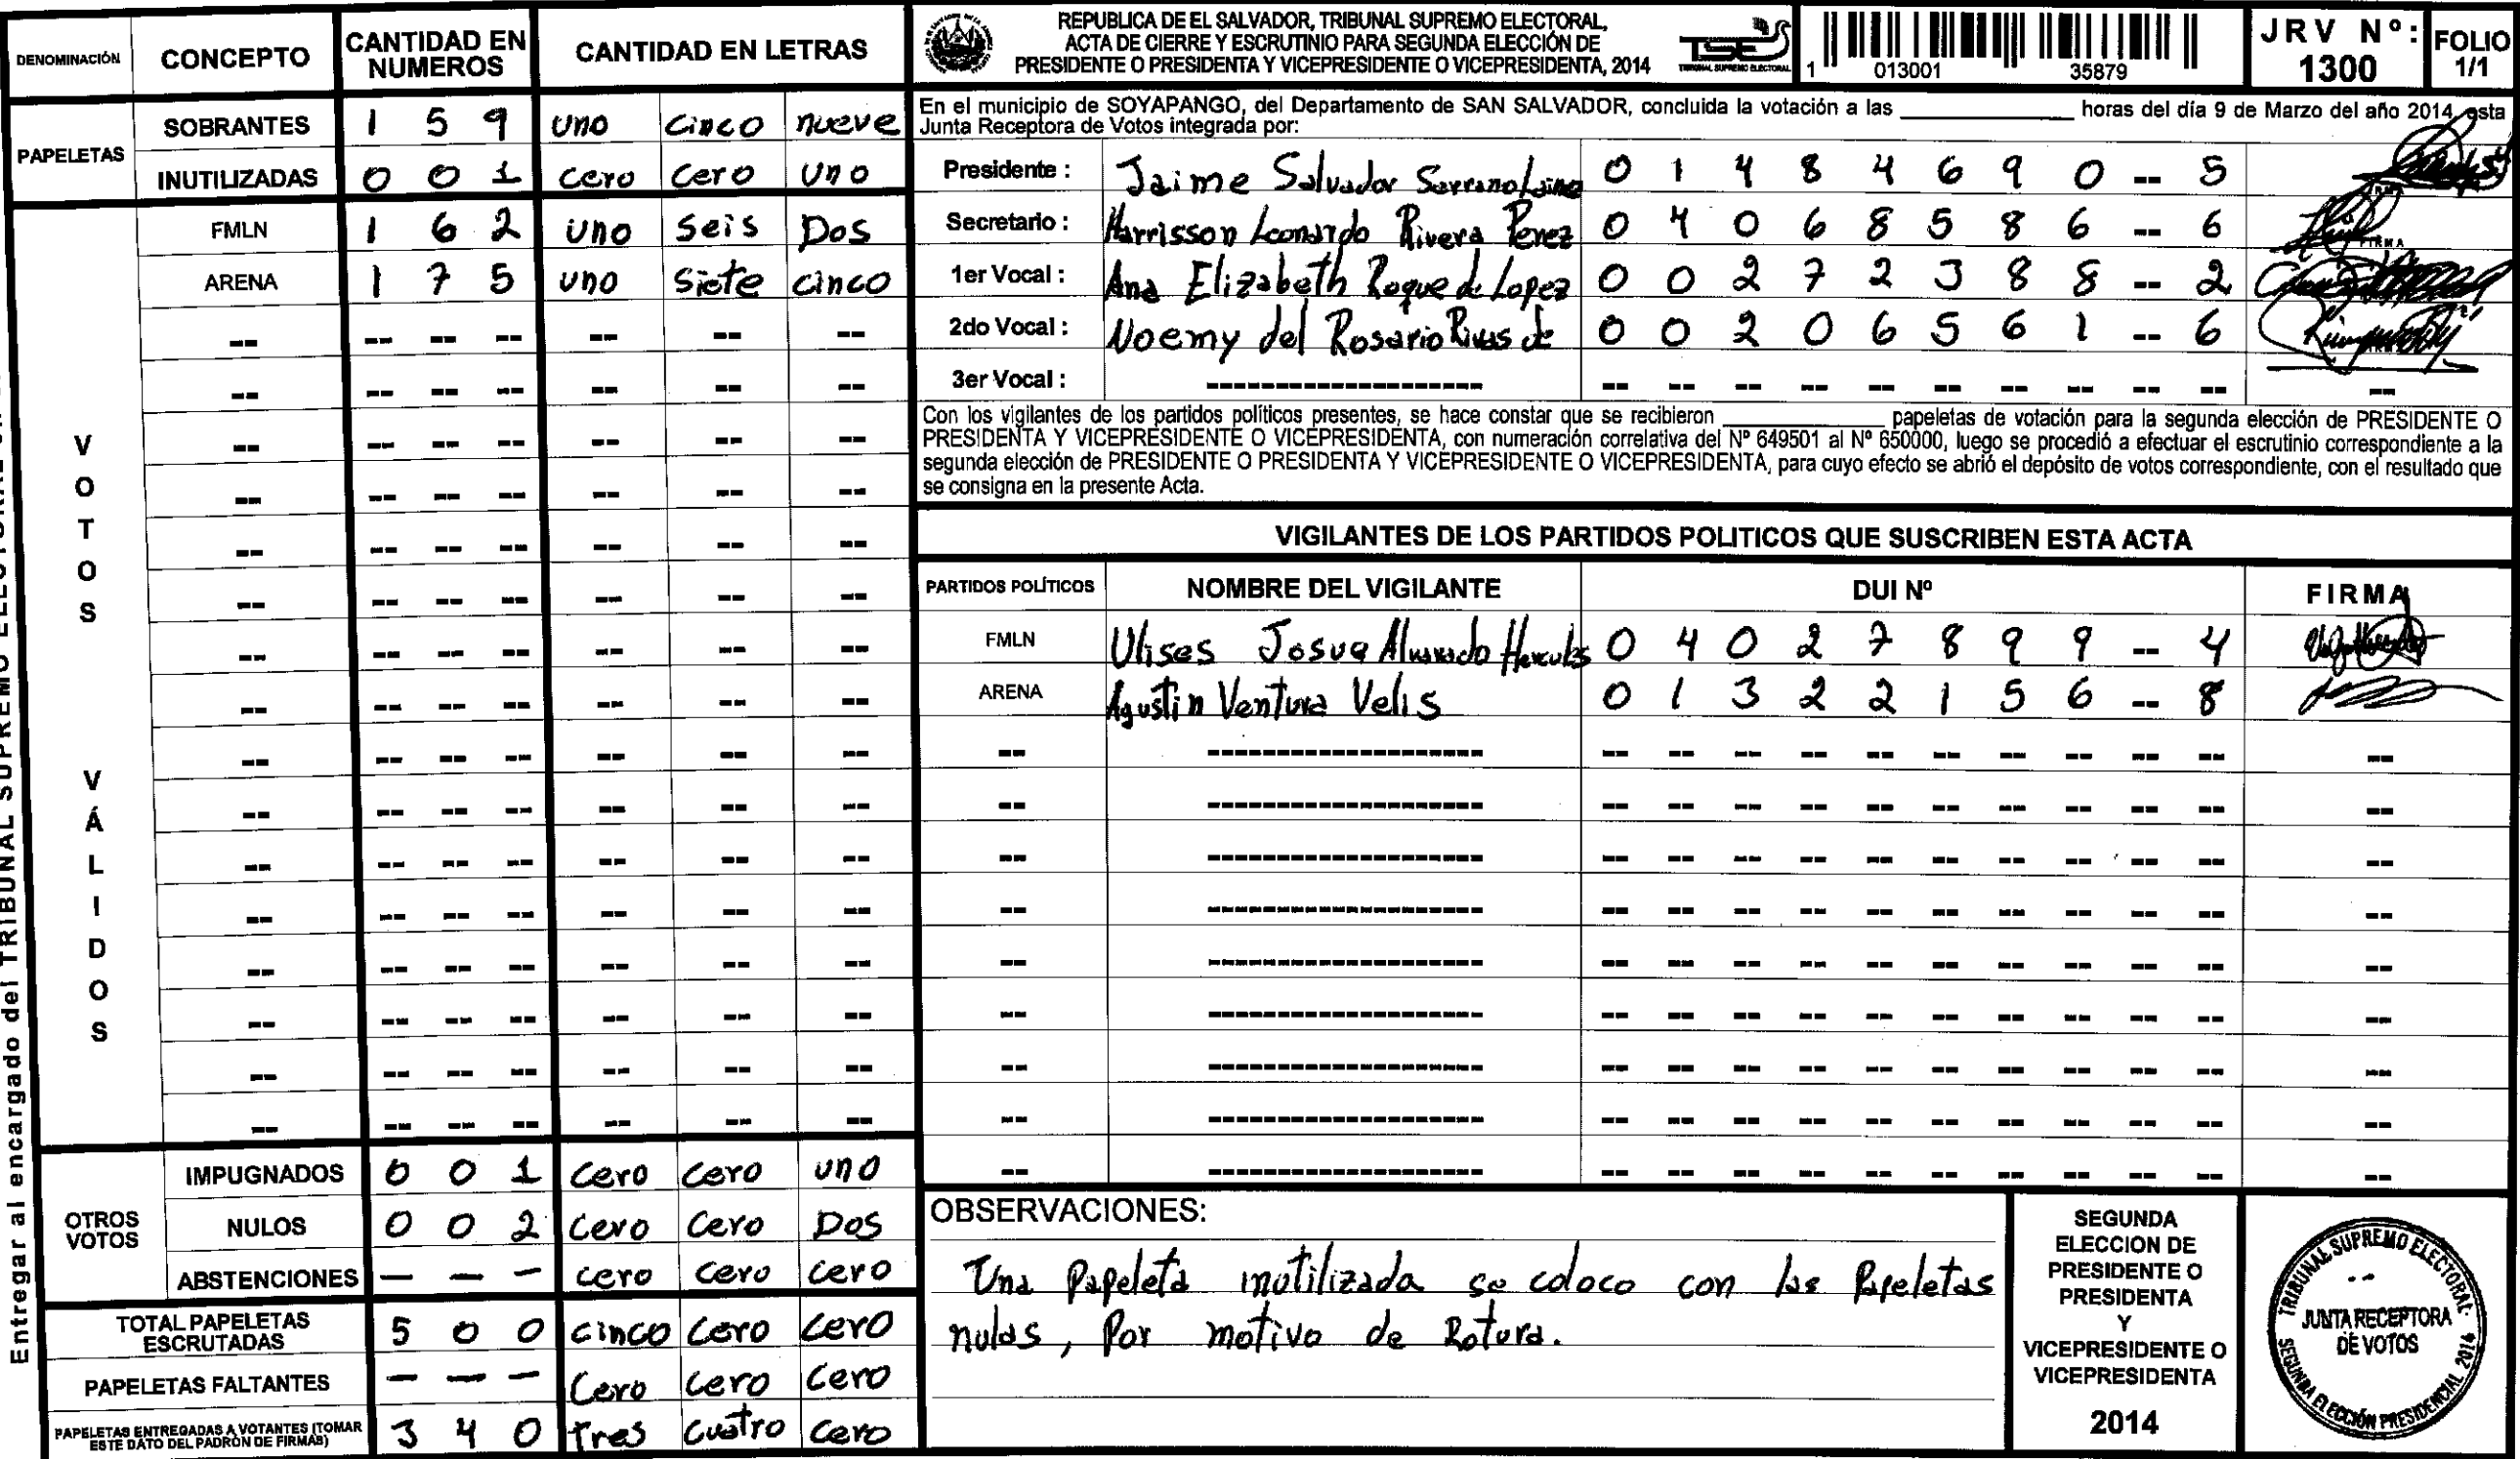 DENOMINACIÓN CONCEPTO CANTIDAD EN NUMEROS CANTIDAD EN LETRAS
PAPELETAS
SOBRANTES 1 5 9 uno cinco nueve
INUTILIZADAS 0 0 1 cero cero uno
VOTOS VÁLIDOS
FMLN 1 6 2 uno seis Dos
ARENA 1 7 5 uno siete cinco
OTROS VOTOS
IMPUGNADOS 0 0 1 cero cero uno
NULOS 0 0 2 cero cero Dos
ABSTENCIONES — — — cero cero cero
TOTAL PAPELETAS ESCRUTADAS 5 0 0 cinco cero cero
PAPELETAS FALTANTES — — — Cero cero cero
PAPELETAS ENTREGADAS A VOTANTES (TOMAR ESTE DATO DEL PADRÓN DE FIRMAS) 3 4 0 Tres cuatro cero
Entregar al encargado del TRIBUNAL SUPREMO
REPUBLICA DE EL SALVADOR, TRIBUNAL SUPREMO ELECTORAL,
ACTA DE CIERRE Y ESCRUTINIO PARA SEGUNDA ELECCIÓN DE
PRESIDENTE O PRESIDENTA Y VICEPRESIDENTE O VICEPRESIDENTA, 2014
TSE
TRIBUNAL SUPREMO ELECTORAL
1 013001 35879
JRV Nº: 1300
FOLIO 1/1
En el municipio de SOYAPANGO, del Departamento de SAN SALVADOR, concluida la votación a las ____ horas del día 9 de Marzo del año 2014, esta
Junta Receptora de Votos integrada por:
Presidente : Jaime Salvador Serrano 0 1 4 8 4 6 9 0 -- 5
Secretario : Harrisson Leonardo Rivera Perez 0 4 0 6 8 5 8 6 -- 6
1er Vocal : Ana Elizabeth Roque de Lopez 0 0 2 7 2 3 8 8 -- 2
2do Vocal : Noemy del Rosario Rivas de 0 0 2 0 6 5 6 1 -- 6
3er Vocal :
Con los vigilantes de los partidos políticos presentes, se hace constar que se recibieron ____ papeletas de votación para la segunda elección de PRESIDENTE O
PRESIDENTA Y VICEPRESIDENTE O VICEPRESIDENTA, con numeración correlativa del Nº 649501 al Nº 650000, luego se procedió a efectuar el escrutinio correspondiente a la
segunda elección de PRESIDENTE O PRESIDENTA Y VICEPRESIDENTE O VICEPRESIDENTA, para cuyo efecto se abrió el depósito de votos correspondiente, con el resultado que
se consigna en la presente Acta.
VIGILANTES DE LOS PARTIDOS POLITICOS QUE SUSCRIBEN ESTA ACTA
PARTIDOS POLÍTICOS NOMBRE DEL VIGILANTE DUI Nº FIRMA
FMLN Ulises Josue Alvarado Hercules 0 4 0 2 7 8 9 9 -- 4
ARENA Agustin Ventura Velis 0 1 3 2 2 1 5 6 -- 8
OBSERVACIONES:
Una Papeleta inutilizada se coloco con las Papeletas
nulas, Por motivo de Rotura.
SEGUNDA
ELECCION DE
PRESIDENTE O
PRESIDENTA
Y
VICEPRESIDENTE O
VICEPRESIDENTA
2014
TRIBUNAL SUPREMO ELECTORAL
JUNTA RECEPTORA
DE VOTOS
SEGUNDA ELECCIÓN PRESIDENCIAL 2014